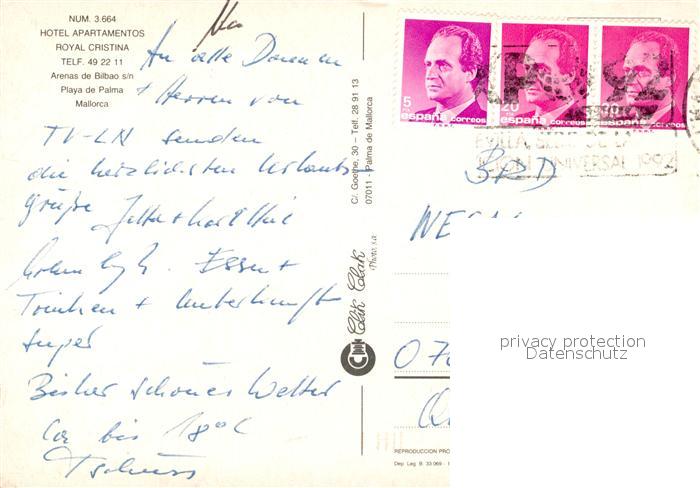 NUM. 3.664
HOTEL APARTAMENTOS
ROYAL CRISTINA
TELF. 49 22 11
Arenas de Bilbao s/n
Playa de Palma
Mallorca
An alle Damen
+ Herren von
TV-LN senden
die herzlichsten Urlaubs
grüße
Essen +
Trinken + Unterkunft
super
Bisher schönes Wetter
ca bis 18°C
Tschüss
C/. Goethe, 30 – Telf. 28 91 13
07011 - Palma de Mallorca
Clik Clak
Photo, s.a.
REPRODUCCION PRO
Dep. Leg. B. 33.069 -
5
españa correos
20
españa correos
30
españa correos
UNIVERSAL 1992
BRD
privacy protection
Datenschutz